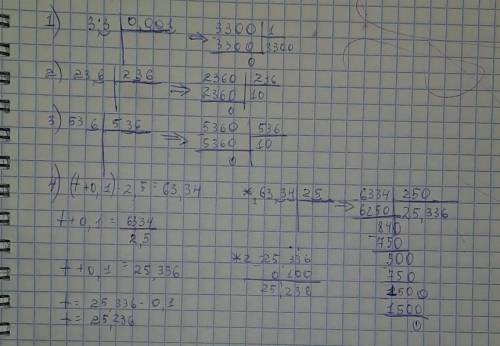 1) 3,3 | 0,001 ⇒ 3300 | 1
3300 3300
0
2) 23,6 | 236 ⇒ 2360 | 236
2360 10
0
3) 536 | 536 ⇒ 5360 | 536
5360 10
0
4) (t+0,1)·2,5=63,34 *1 63,34 | 25 ⇒ 6334 | 250
6250 25,336
t+0,1 = 6334 840
2,5 750
*2 - 25,336 900
t+0,1=25,336 0,100 750
25,236 1500
t= 25,336-0,1 1500
t= 25,236 0